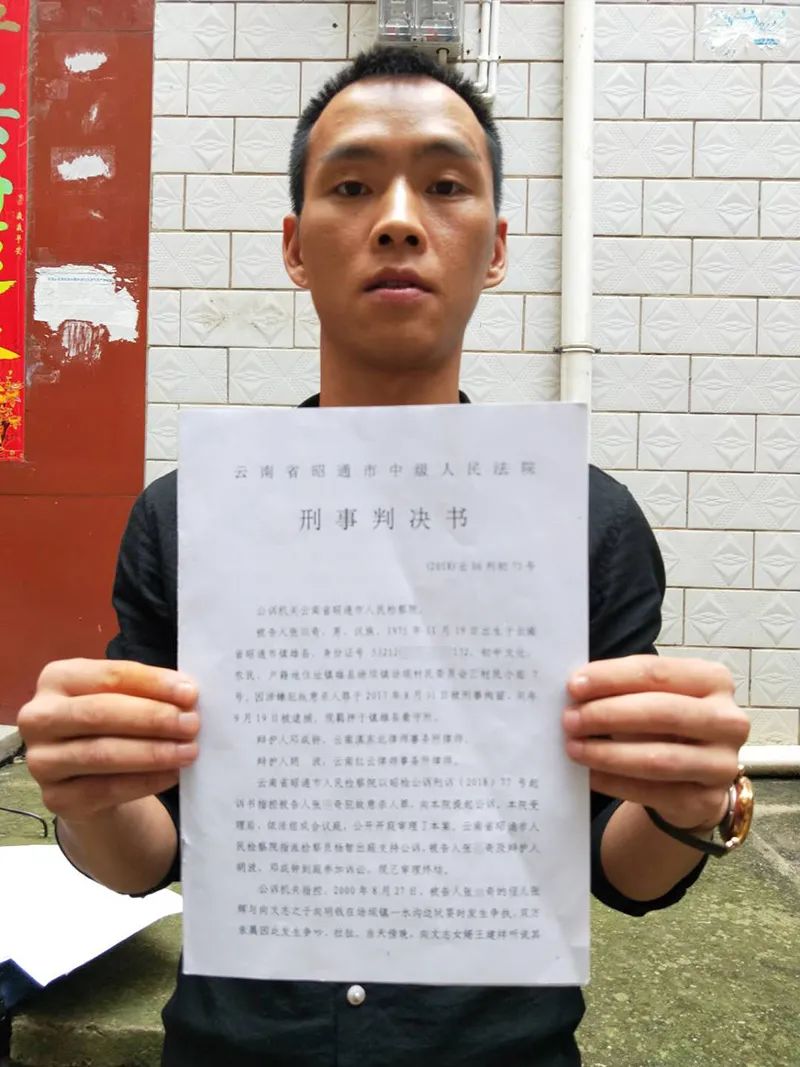 岁岁平安
云南省昭通市中级人民法院
刑事判决书
(2018)云06刑初
号
公诉机关云南省昭通市人民检察院。
被告人张 奇，男，汉族，1971年11月19日出生于云南
省昭通市镇雄县，身份证号53212 132，初中文化，
农民，户籍地住址镇雄县场坝镇场坝村民委员会 村民小组 7
号。因涉嫌犯故意杀人罪于2017年8月31日被刑事拘留，同年
9月19日被逮捕。现羁押于镇雄县看守所。
辩护人邓成钟，云南滇东北律师事务所律师。
辩护人胡 波，云南红云律师事务所律师。
云南省昭通市人民检察院以昭检公诉刑诉（2018）77号起
诉书指控被告人张 奇犯故意杀人罪，向本院提起公诉。本院受
理后，依法组成合议庭，公开开庭审理了本案。云南省昭通市人
民检察院指派检察员杨智出庭支持公诉，被告人张 奇及辩护人
胡波、邓成钟到庭参加诉讼。现已审理终结。
公诉机关指控，2000年8月27日，被告人张 奇的侄儿张
辉与向文志之子向明载在场坝镇一水沟边 时发生争执，双方
亲属因此发生争吵、拉扯。当天傍晚，向文志女婿王建祥听说其